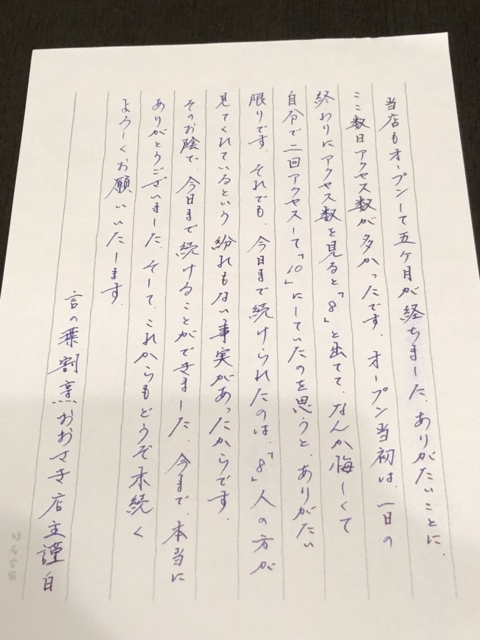 当店もオープンして五ケ月が経ちました。ありがたいことに、
ここ数日アクセス数が多かったです。オープン当初は、一日の
終わりにアクセス数を見ると「8」と出てて、なんか悔しくて
自分で二回アクセスして「10」にしていたのを思うと、ありがたい
限りです。それでも、今日まで続けられたのは、「8」人の方が
見てくれているという紛れもない事実があったからです。
そのお陰で、今日まで続けることができました。今まで、本当に
ありがとうございました。そして、これからもどうぞ末続く
よろしくお願いいたします。
言の葉割烹おおさき店主謹白